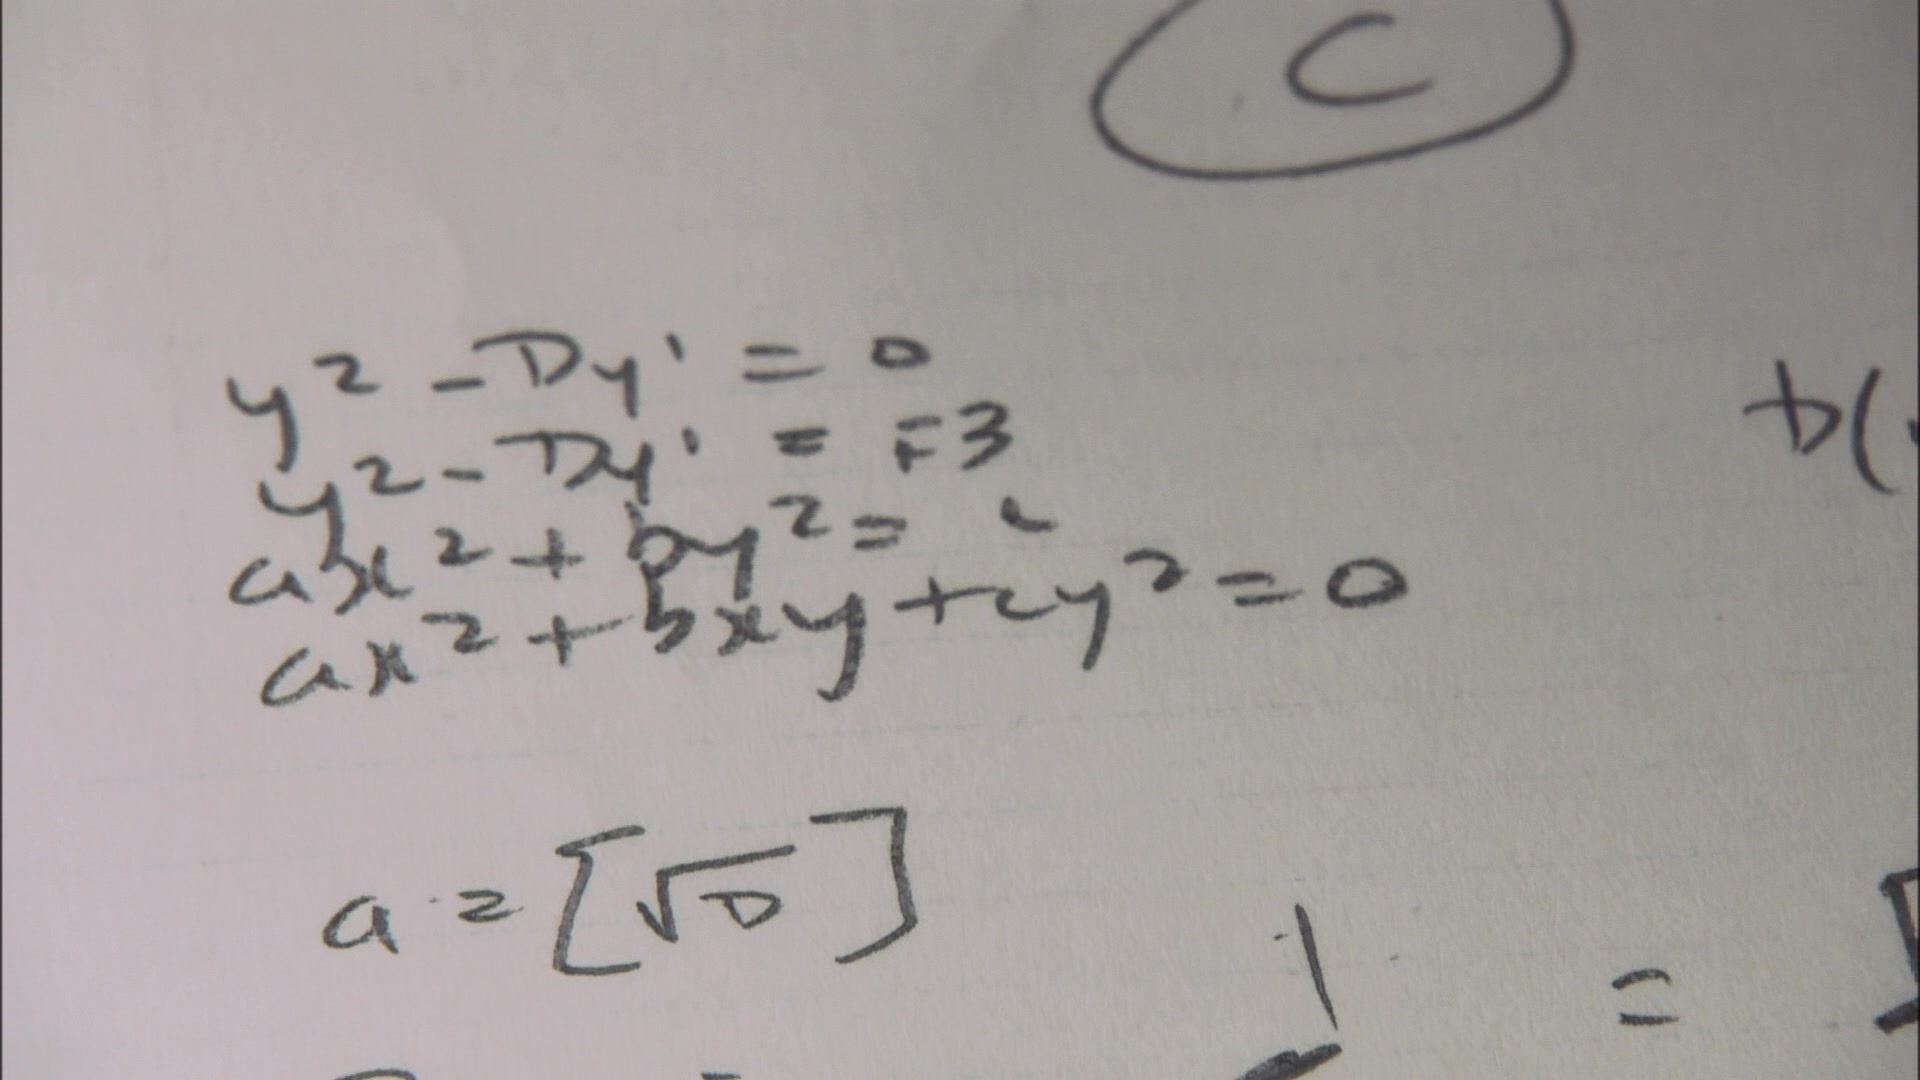 C
y² - Dy' = 0
y² - Dy' = F3
b(
ax² + by² = c
ax² + bxy + cy² = 0
a = [√D]
1 =